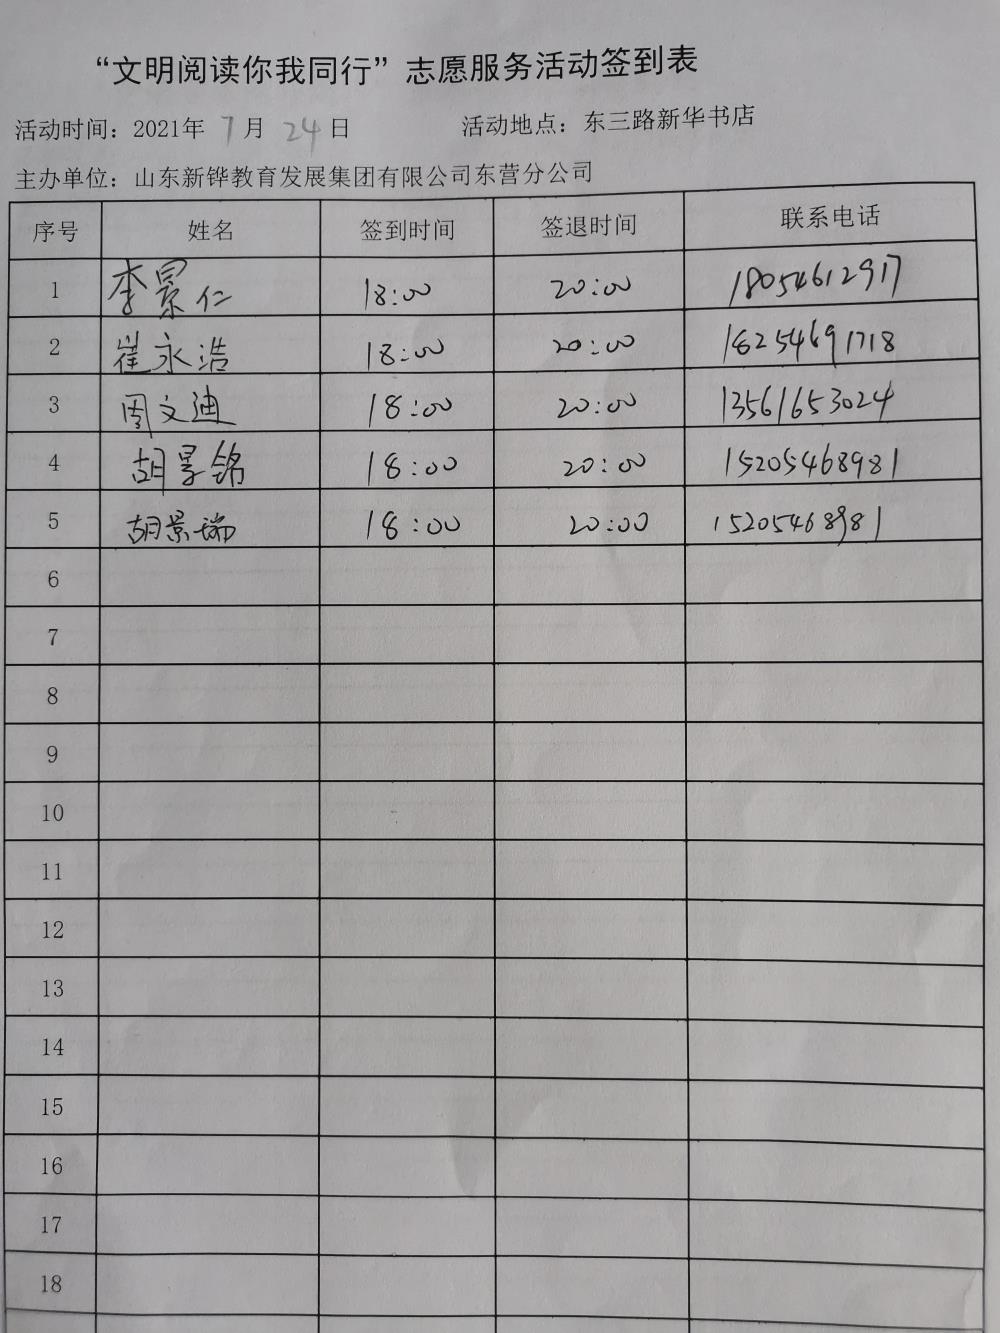 “文明阅读你我同行”志愿服务活动签到表
活动时间：2021年 7月 24日 活动地点：东三路新华书店
主办单位：山东新铧教育发展集团有限公司东营分公司
序号 姓名 签到时间 签退时间 联系电话
1 李景仁 18:00 20:00 18054612917
2 崔永浩 18:00 20:00 18254691718
3 周文迪 18:00 20:00 13561653024
4 胡景铭 18:00 20:00 15205468981
5 胡景瑞 18:00 20:00 15205468981
6
7
8
9
10
11
12
13
14
15
16
17
18